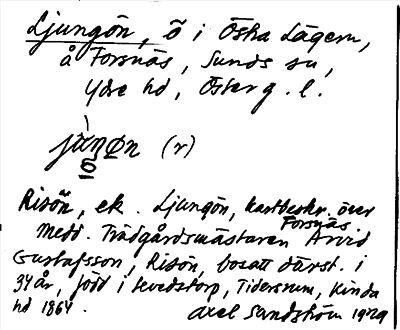 Ljungön, ö i Östra Lägern,
å Forsnäs, Sunds sn,
Ydre hd, Österg. l.
(r)
Risön, ek. Ljungön, kartbeskr. över Forsnäs.
Medd. Trädgårdsmästaren Arvid
Gustafsson, Risön, bosatt därst. i
34 år, född i Hevedstorp, Tidersrum, Kinda
hd 1864. Axel Sandström 1929